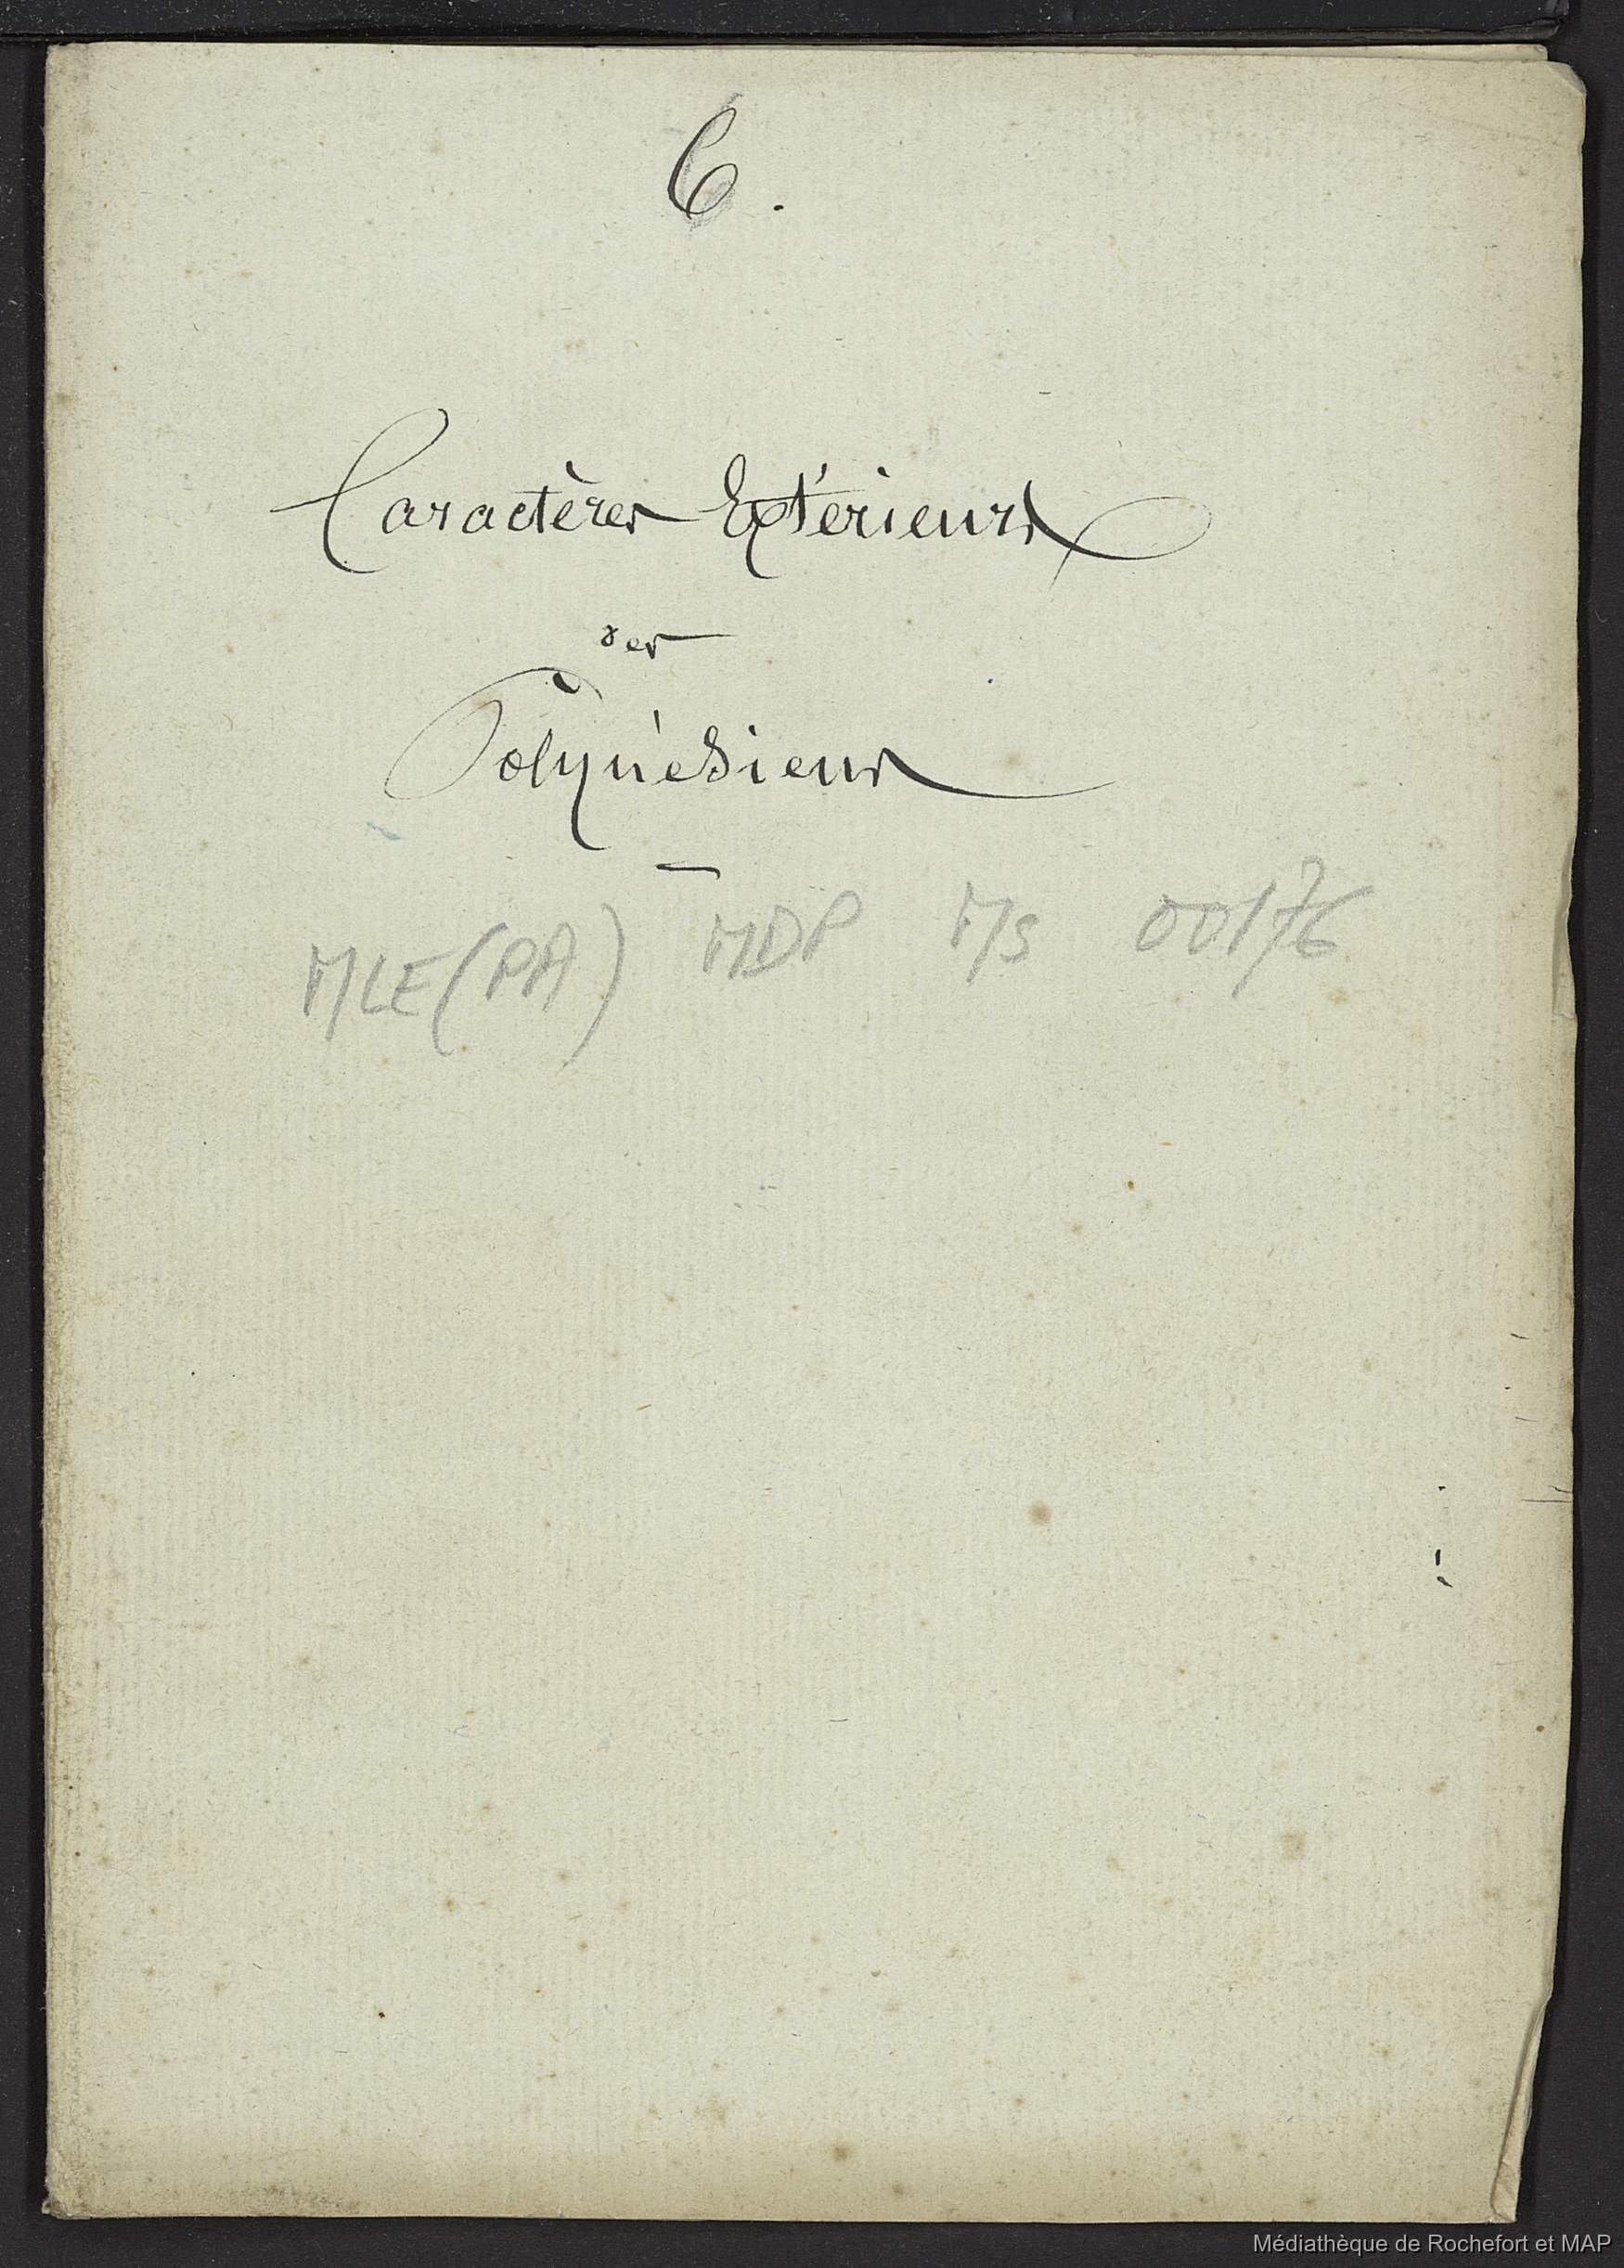 6.
Caractères Extérieurs
des
Polynésiens
MLE(PA) MDP Ms 00176
Médiathèque de Rochefort et MAP